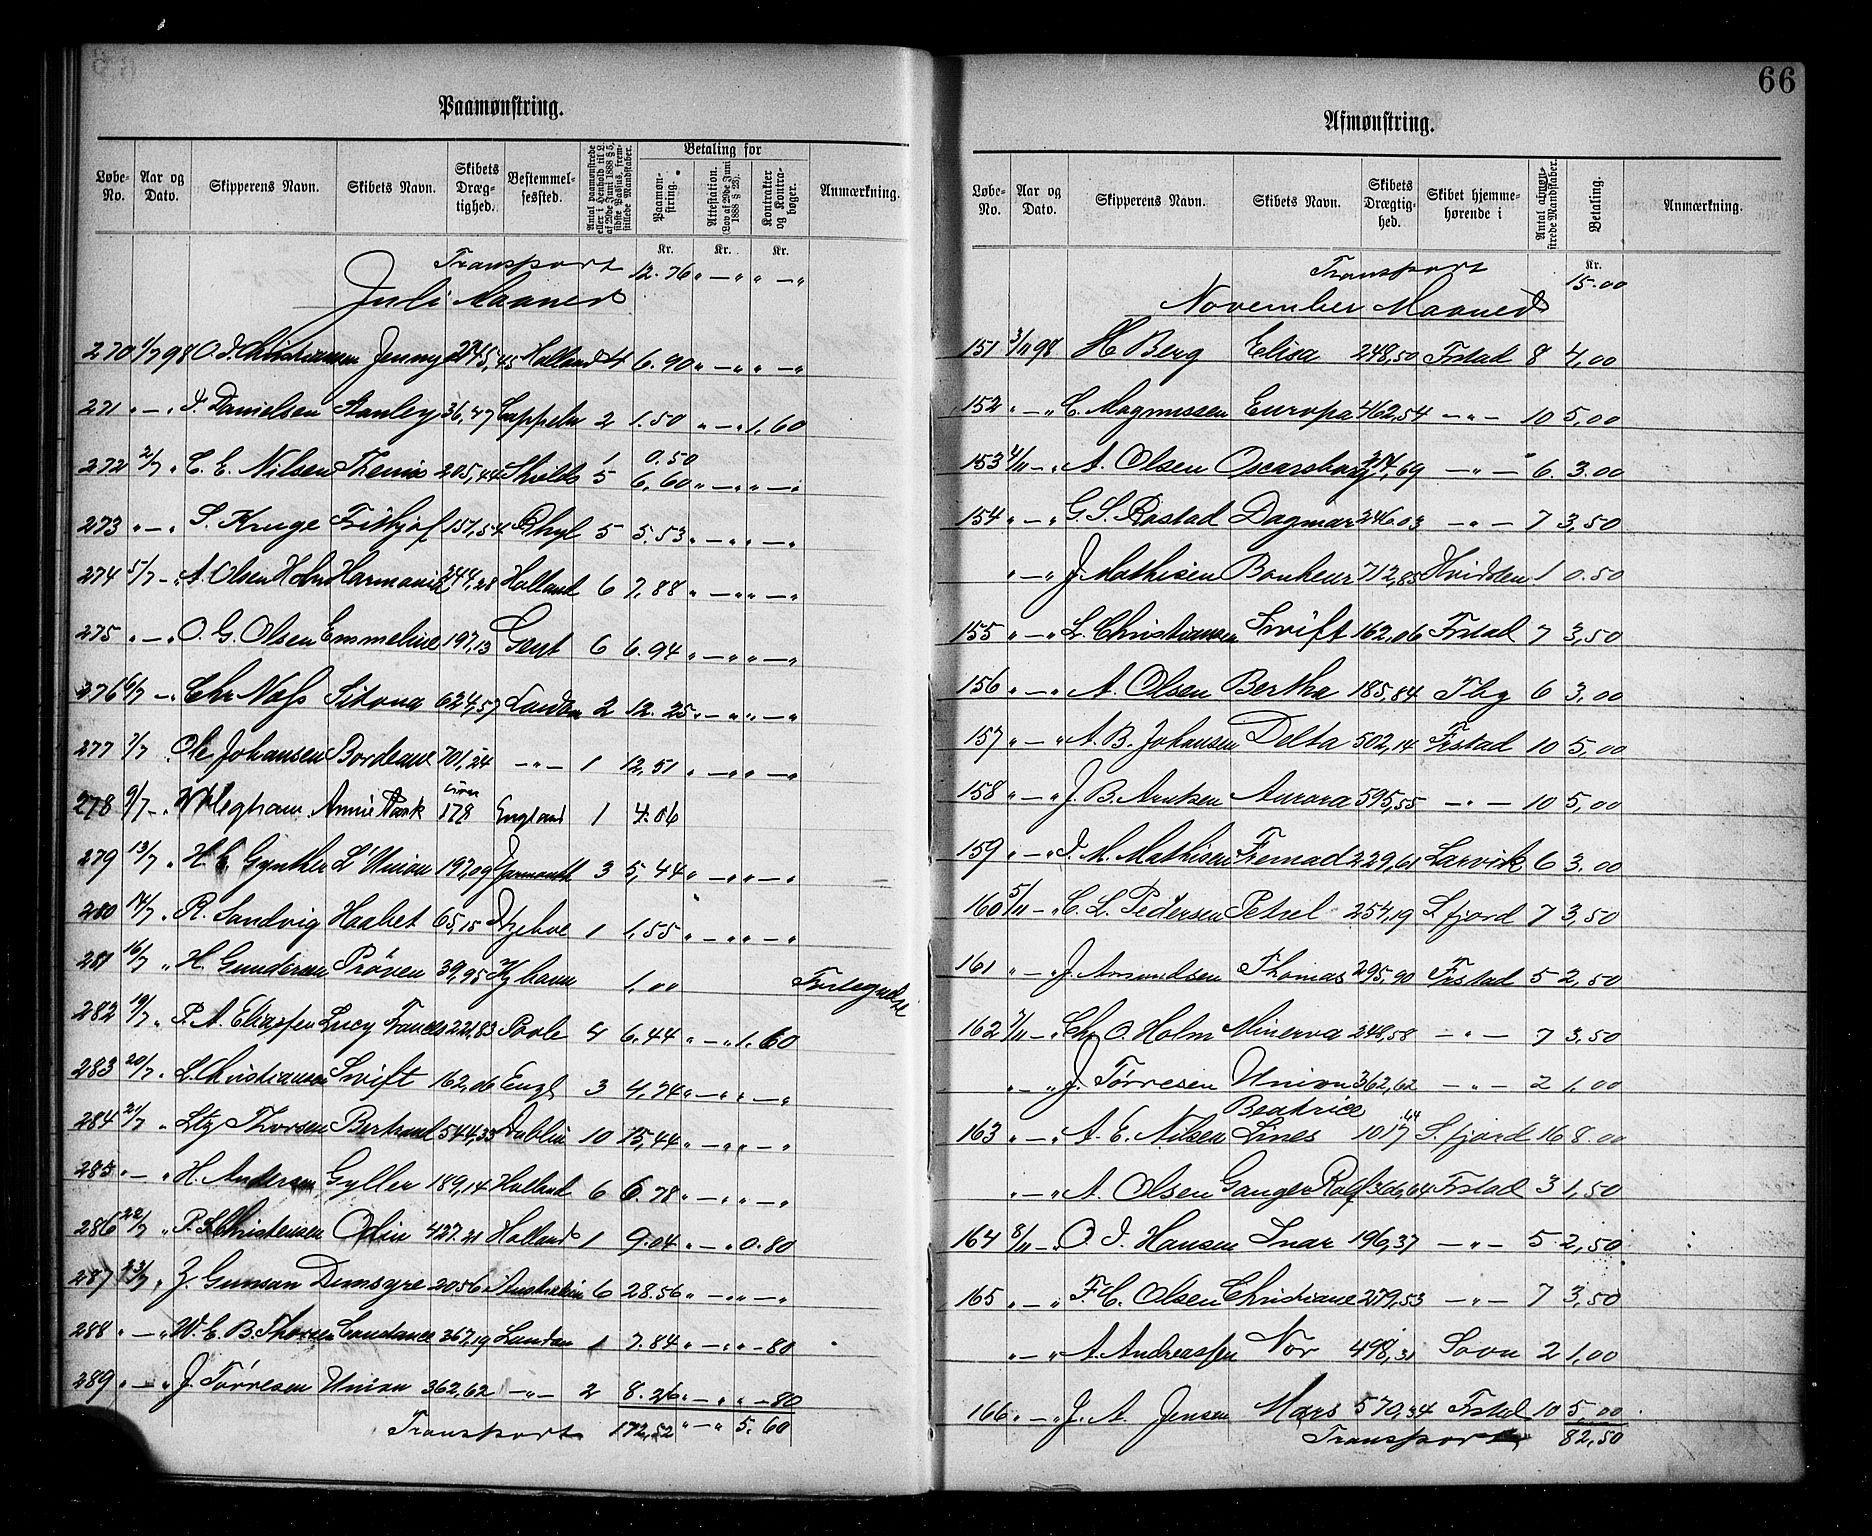 66
Paamønstring.
Løbe-No. Aar og Dato. Skipperens Navn. Skibets Navn. Skibets Dræg-tighed. Bestemmel-sessted. Antal paamønstrede eller i Henhold til L. af 29de Juni 1888 § 5, sidste Passus, frem-stillede Mandskaber. Betaling for Paamøn-string. Attestation. (Lov af 29de Juni 1888 § 23). Kontrakter og Kontra-bøger. Anmærkning.
Kr. Kr. Kr.
Transport 12.76 " — " " — "
Juli Maaned
270 1/7 98 O. J. Christiansen Jenny 245,45 Holland 4 6.90 " — " " — "
271 " — " J. Danielsen Stanley 36,47 Cappeln 2 1.50 " — " 1,60
1 0.50
272 2/7 " C. E. Nilsen Themis 205,44 5 6,60 " — " " — "
273 " — " S. Kruge Frithjof 151,54 Rhyl 5 5.53 " — " " — "
274 5/7 - " A. Olsen Holm Harmonie 244,28 Holland 6 7,88 " — " " — "
275 " — " O. G. Olsen Emmeline 197,13 Gent 6 6.94 " — " " — "
276 6/7 — " Chr Næss Sitona 624,57 London 2 12.25 " — " " — "
277 7/7 " Ole Johansen Bordeaux 701,24 — " — 1 12,51 " — " " — "
278 9/7 — " Annie Park 178 England 1 4.06
279 13/7 " H. C. Gynther L. Union 197,09 Jarmouth 3 5,44 " — " " — "
280 14/7 " R. Sandvig Haabet 65,15 1 1,55 " — " " — "
281 16/7 " H. Gundersen Prøven 39,95 Kjhavn 1,00
282 19/7 " P. A. Eliassen Lucy Fances 221,83 Poole 4 6,44 " — " 1.60
283 20/7 " L. Christiansen Swift 162,06 Engl 3 4,74 " — " " — "
284 21/7 " Ltz Thorsen Bertrand 544,33 Dublin 10 15,44 " — " " — "
285 " — " H. Andersen Gyller 189,14 Holland 6 6.78 " — " " — "
286 22/7 " P. L. Christensen Odin 427.21 Holland 1 9.04 " — " 0.80
287 23/7 " Z. Gunsan Demsgre 2056 Australien 6 28.56 " — " " — "
288 " — " W. C. B. Thorsen Constance 367,19 London 1 7.84 " — " " — 80
289 " — " J. Tørresen Union 362,62 — " — 2 8.26 " — " " — 80
Transport 172,52 " — " 5.60
Afmønstring.
Løbe-No. Aar og Dato. Skipperens Navn. Skibets Navn. Skibets Drægtig-hed. Skibet hjemme-hørende i Antal afmøn-strede Mandskaber. Betaling. Anmærkning.
Kr.
Transport 15.00
November Maaned
151 3/11 98 H Berg Elisa 248,50 Frstad 8 4,00
152 " — " C. Magnussen Europa 462,54 — " — 10 5,00
153 4/11 — " A. Olsen Oscarsborg 317,69 — " — 6. 3.00
154 " — " G. S. Rostad Dagmar 246.03 — " — 7 3,50
" — " J. Mathisen Bonheur 712,85 Hvidsten 1 0.50
155 " — " L. Christiansen Swift 162,06 Frstad 7 3,50
156 " — " A. Olsen Bertha 185,84 Tbg 6 3,00
157 " — " A. B. Johansen Delta 502,14 Frstad 10 5,00
158 " — " J. B. Arntsen Aurora 595,55 — " — 10 5,00
159 " — " J. M. Mathisen Fremad 229,61 Larvik 6 3.00
160 5/11 — " C. L. Pedersen Petrel 254,19 S. fjord 7 3,50
161 " — " J. Amundsen Thomas 295,90 Frstad 5 2,50
162 7/11 — " Chr. O. Holm Minerva 248,58 — " — 7 3,50
" — " J. Tørresen Union 362,62 — " — 2 1,00
Beatrice
163 " — " A. E. Nilsen Lines 1017 S. fjord 16 8.00
" — " A. Olsen Ganger Rolf 366,64 Frstad 3 1,50
164 8/11 — " O. J. Hansen Snar 196,37 — " — 5 2,50
165 " — " F. C. Olsen Christiane 279,53 — " — 7 3,50
" — " A. Andreassen Nor 498,31 Sovn 2 1,00
166 " — " J. A. Jensen Mars 570,34 Frstad 10 5,00
Transport 82,50